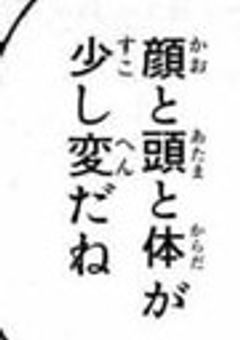 顔と頭と体が
少し変だね